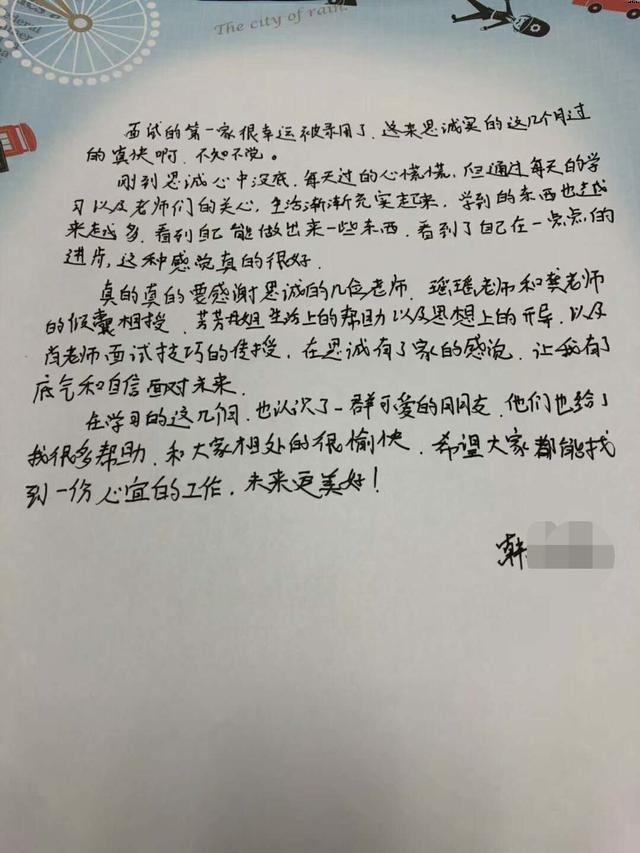 The city of rain.
面试的第一家很幸运被录用了，这来思诚实的这几个月过
的真快啊，不知不觉。
刚到思诚心中没底，每天过的心慌慌，但通过每天的学
习以及老师们的关心，生活渐渐充实起来，学到的东西也越
来越多，看到自己能做出来一些东西，看到了自己在一点点的
进步，这种感觉真的很好。
真的真的要感谢思诚的几位老师，瑶瑶老师和龚老师
的倾囊相授，芳芳姐生活上的帮助以及思想上的开导，以及
肖老师面试技巧的传授，在思诚有了家的感觉，让我有了
底气和自信面对未来。
在学习的这几个月，也认识了一群可爱的同同友，他们也给了
我很多帮助，和大家相处的很愉快，希望大家都能找
到一份心宜的工作，未来更美好！
韩